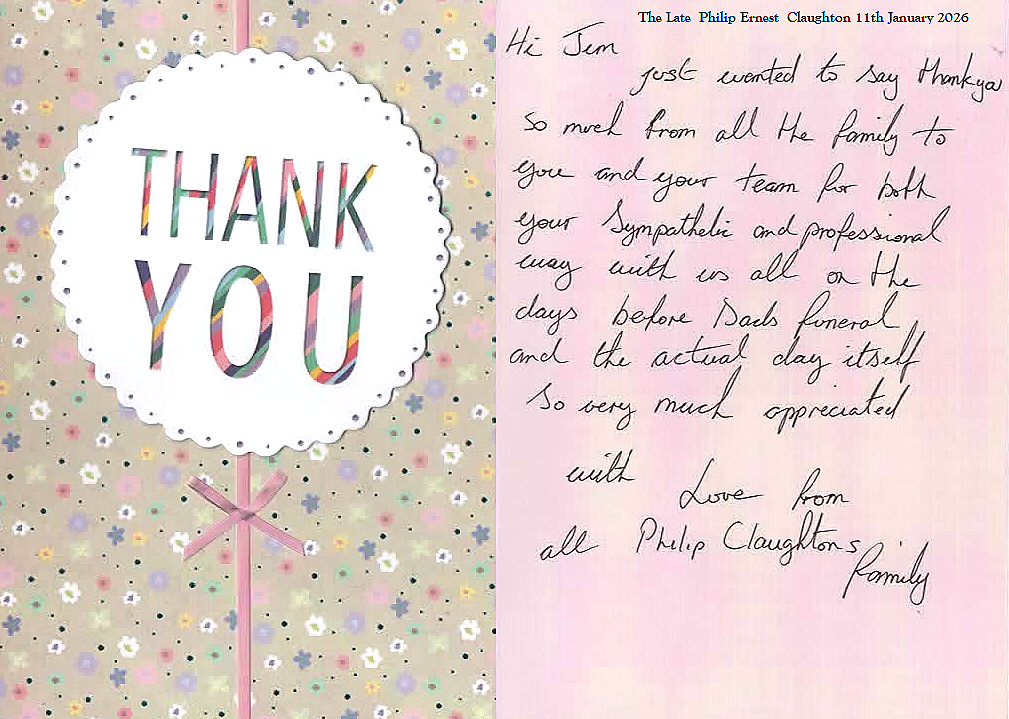 THANK
YOU
The Late Philip Ernest Claughton 11th January 2026
Hi Jim
just wanted to say thankyou
so much from all the family to
you and your team for both
your Sympathetic and professional
way with us all on the
days before Dads funeral,
and the actual day itself
So very much appreciated
with
Love from
all Philip Claughtons
family